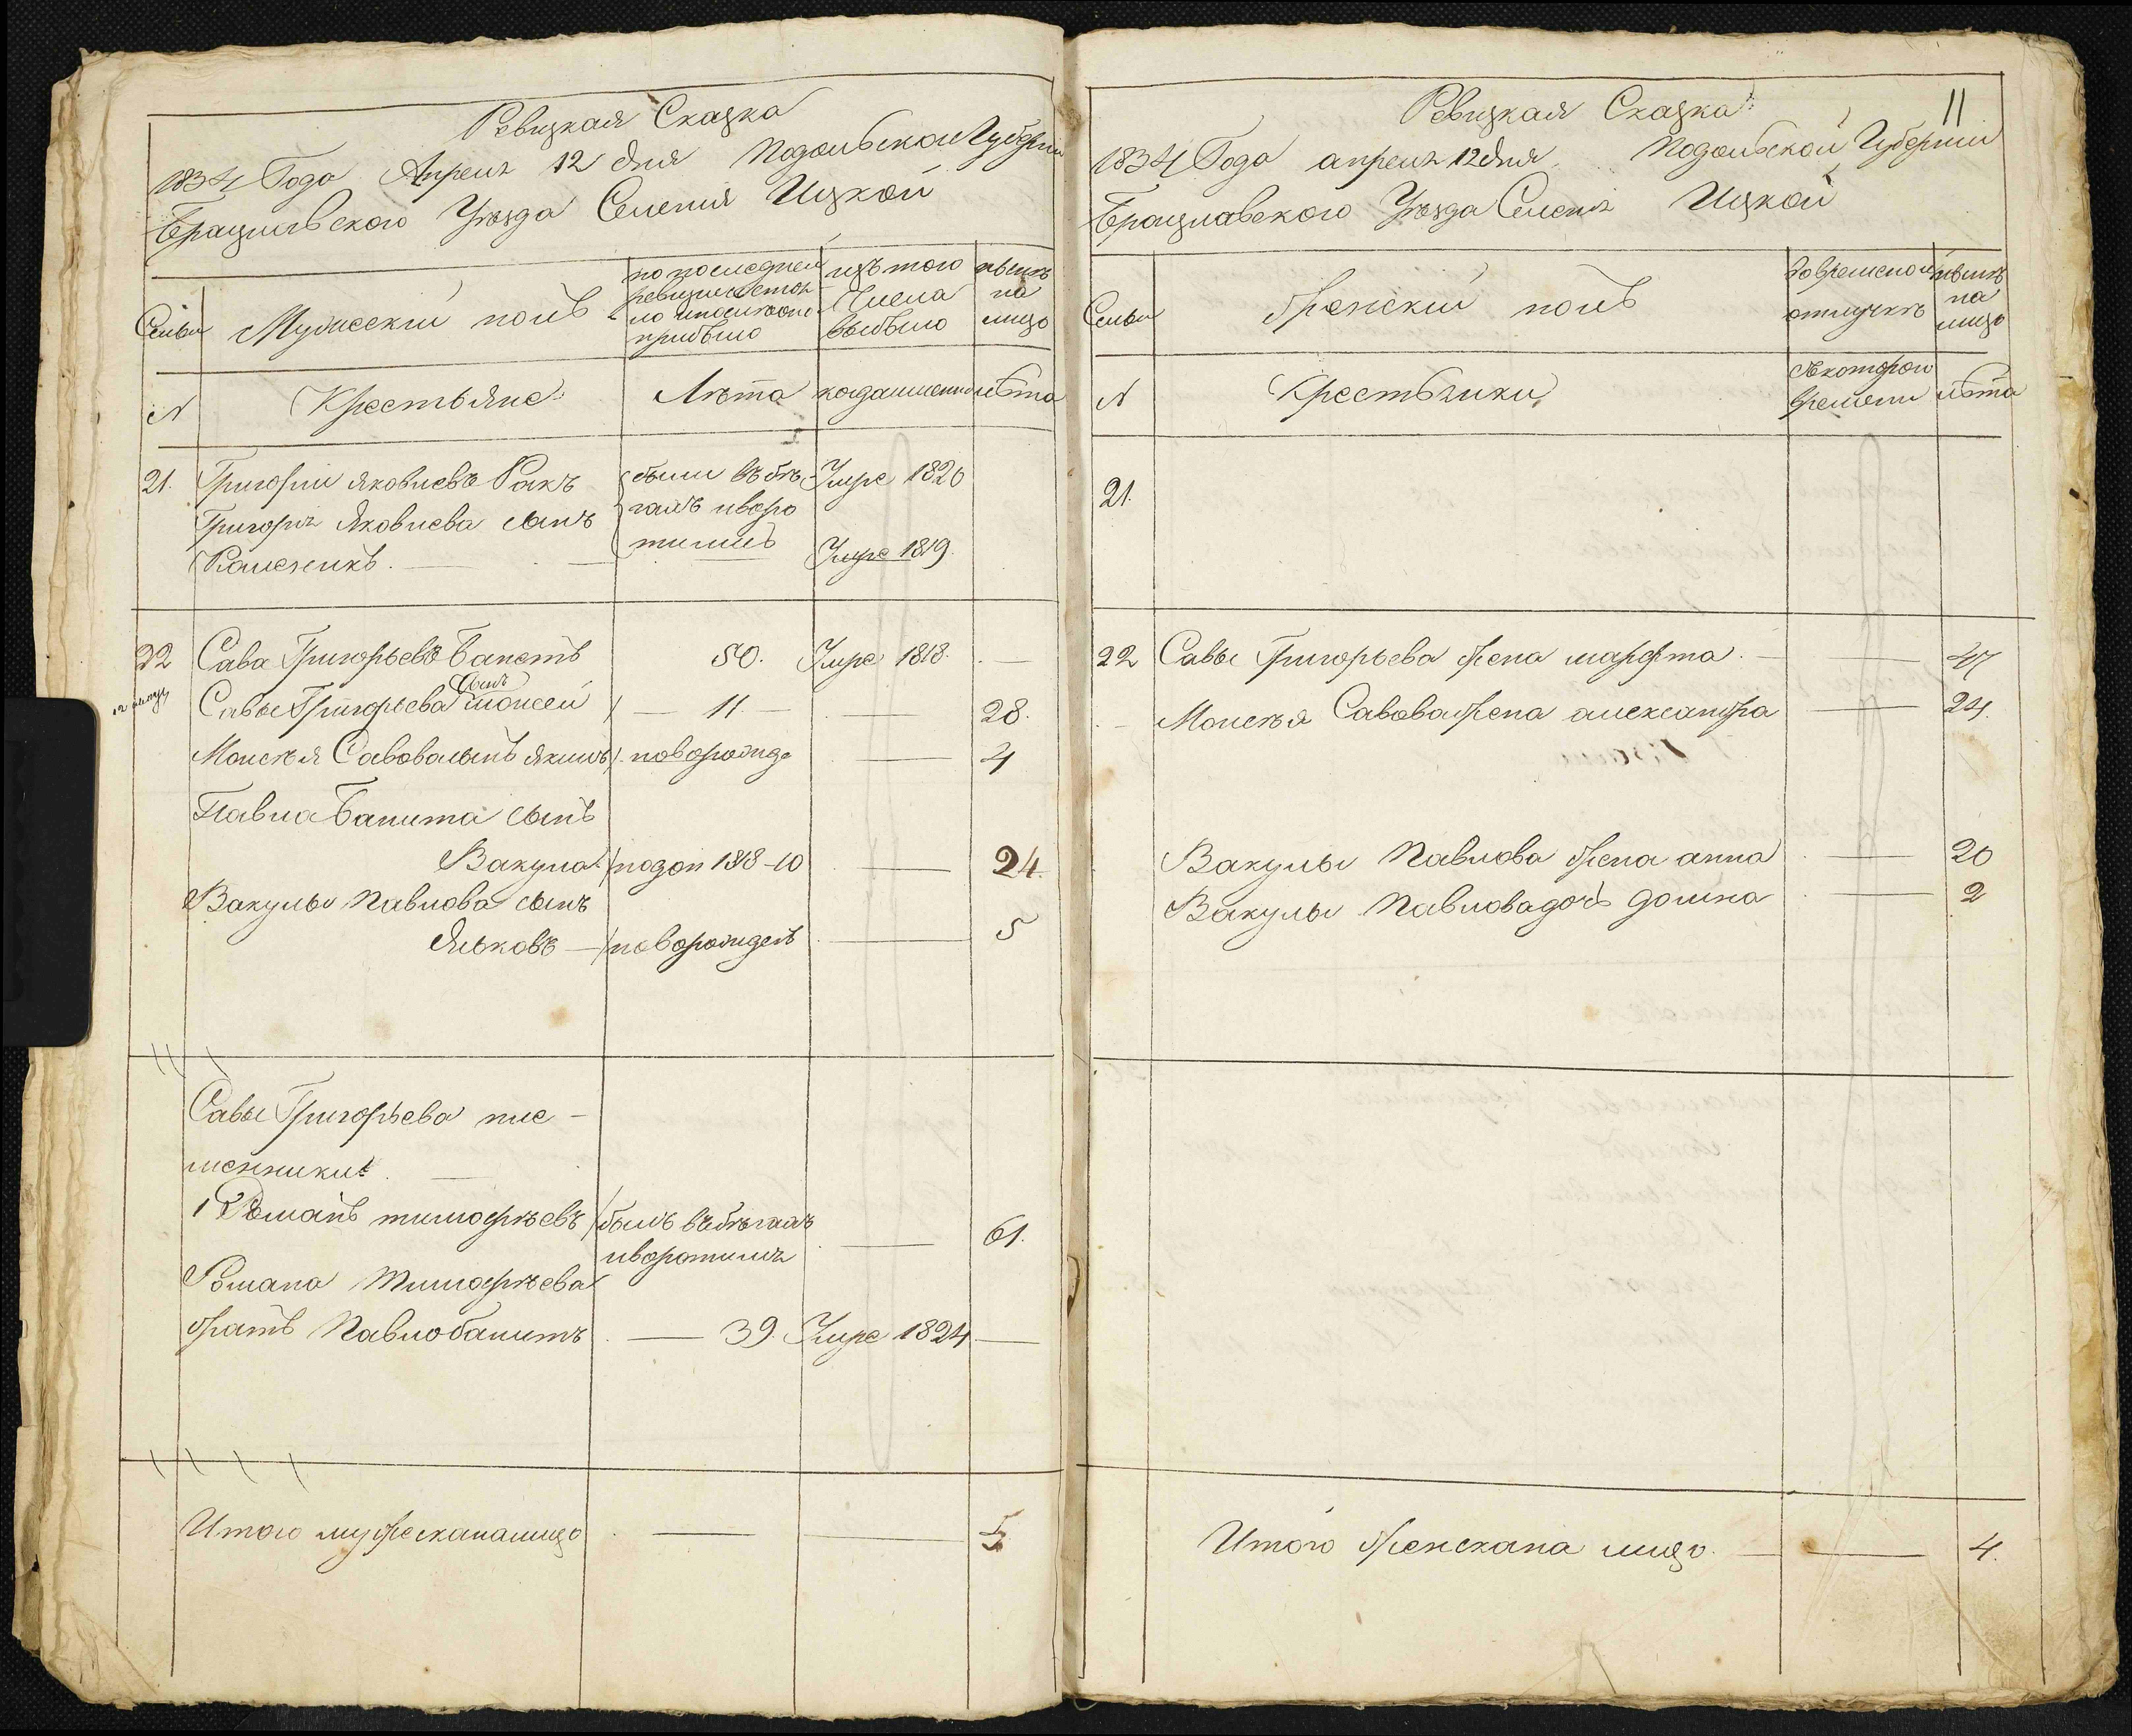 Ревизкая Сказка
1834 Года Апреля 12 дня Подольской Губернии
Брацлавского Уезда Селения Ицкой
Семьи
Мужеский полъ
по последней
ревизии состоя
ло и после оной
прибыло
изъ того
Числа
выбыло
ныне
на
лицо
N
Крестьяне
Лѣта
когда именно
лѣта
21. Григорий Яковлевъ Ракъ были въ бѣ Умре 1820
Григорія Яковлева сынъ гахъ и воро
тились Умре 1819.
22 Сава Григорьевъ Банетъ 50. Умре 1818. —
сынъ
Савы Григорьева моисей 11 — 28.
Моисѣя Савова сынъ якимъ новорожде — 4
Павла Банита сынъ
Вакула 1818 - 10 — 24.
Вакулы Павлова сынъ
Яковъ — новорожденъ — 5
Савы Григорьева пле-
менники
1 Романъ тимофѣевъ былъ въ бѣгахъ — 61.
и воротился
Романа Тимофѣева
братъ Павло банитъ — 39. Умре 1824 —
Итого мужеска на лицо — — 5
11
Ревизкая Сказка
1834 Года апреля 12 дня Подольской Губернии
Брацлавского Уезда Селения Ицкой
Семьи
Женский полъ
во временной
отлучкѣ
ныне
на
лицо
N
Крестьянки
съ которого
времени
лѣта
21.
22 Савы Григорьева жена марфта — 47
Моисѣя Савова жена александра — 24.
Вакулы Павлова жена анна — 20
Вакулы Павлова дочь домна — 2
Итого женска на лицо — 4.